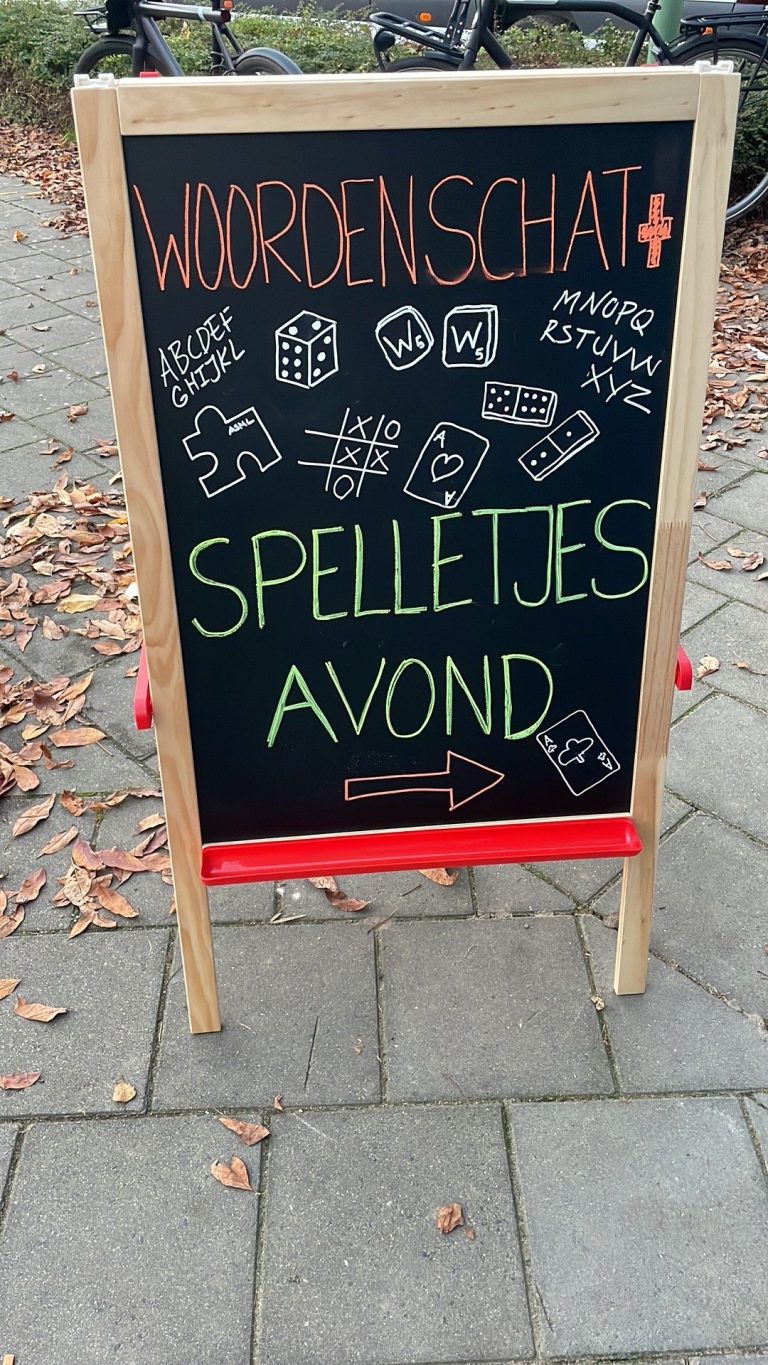 WOORDENSCHAT+
ABCDEF
GHIJKL
W5
W5
MNOPQ
RSTUVW
XYZ
ASML
X O
X X
O
A
A
SPELLETJES
AVOND
A
A